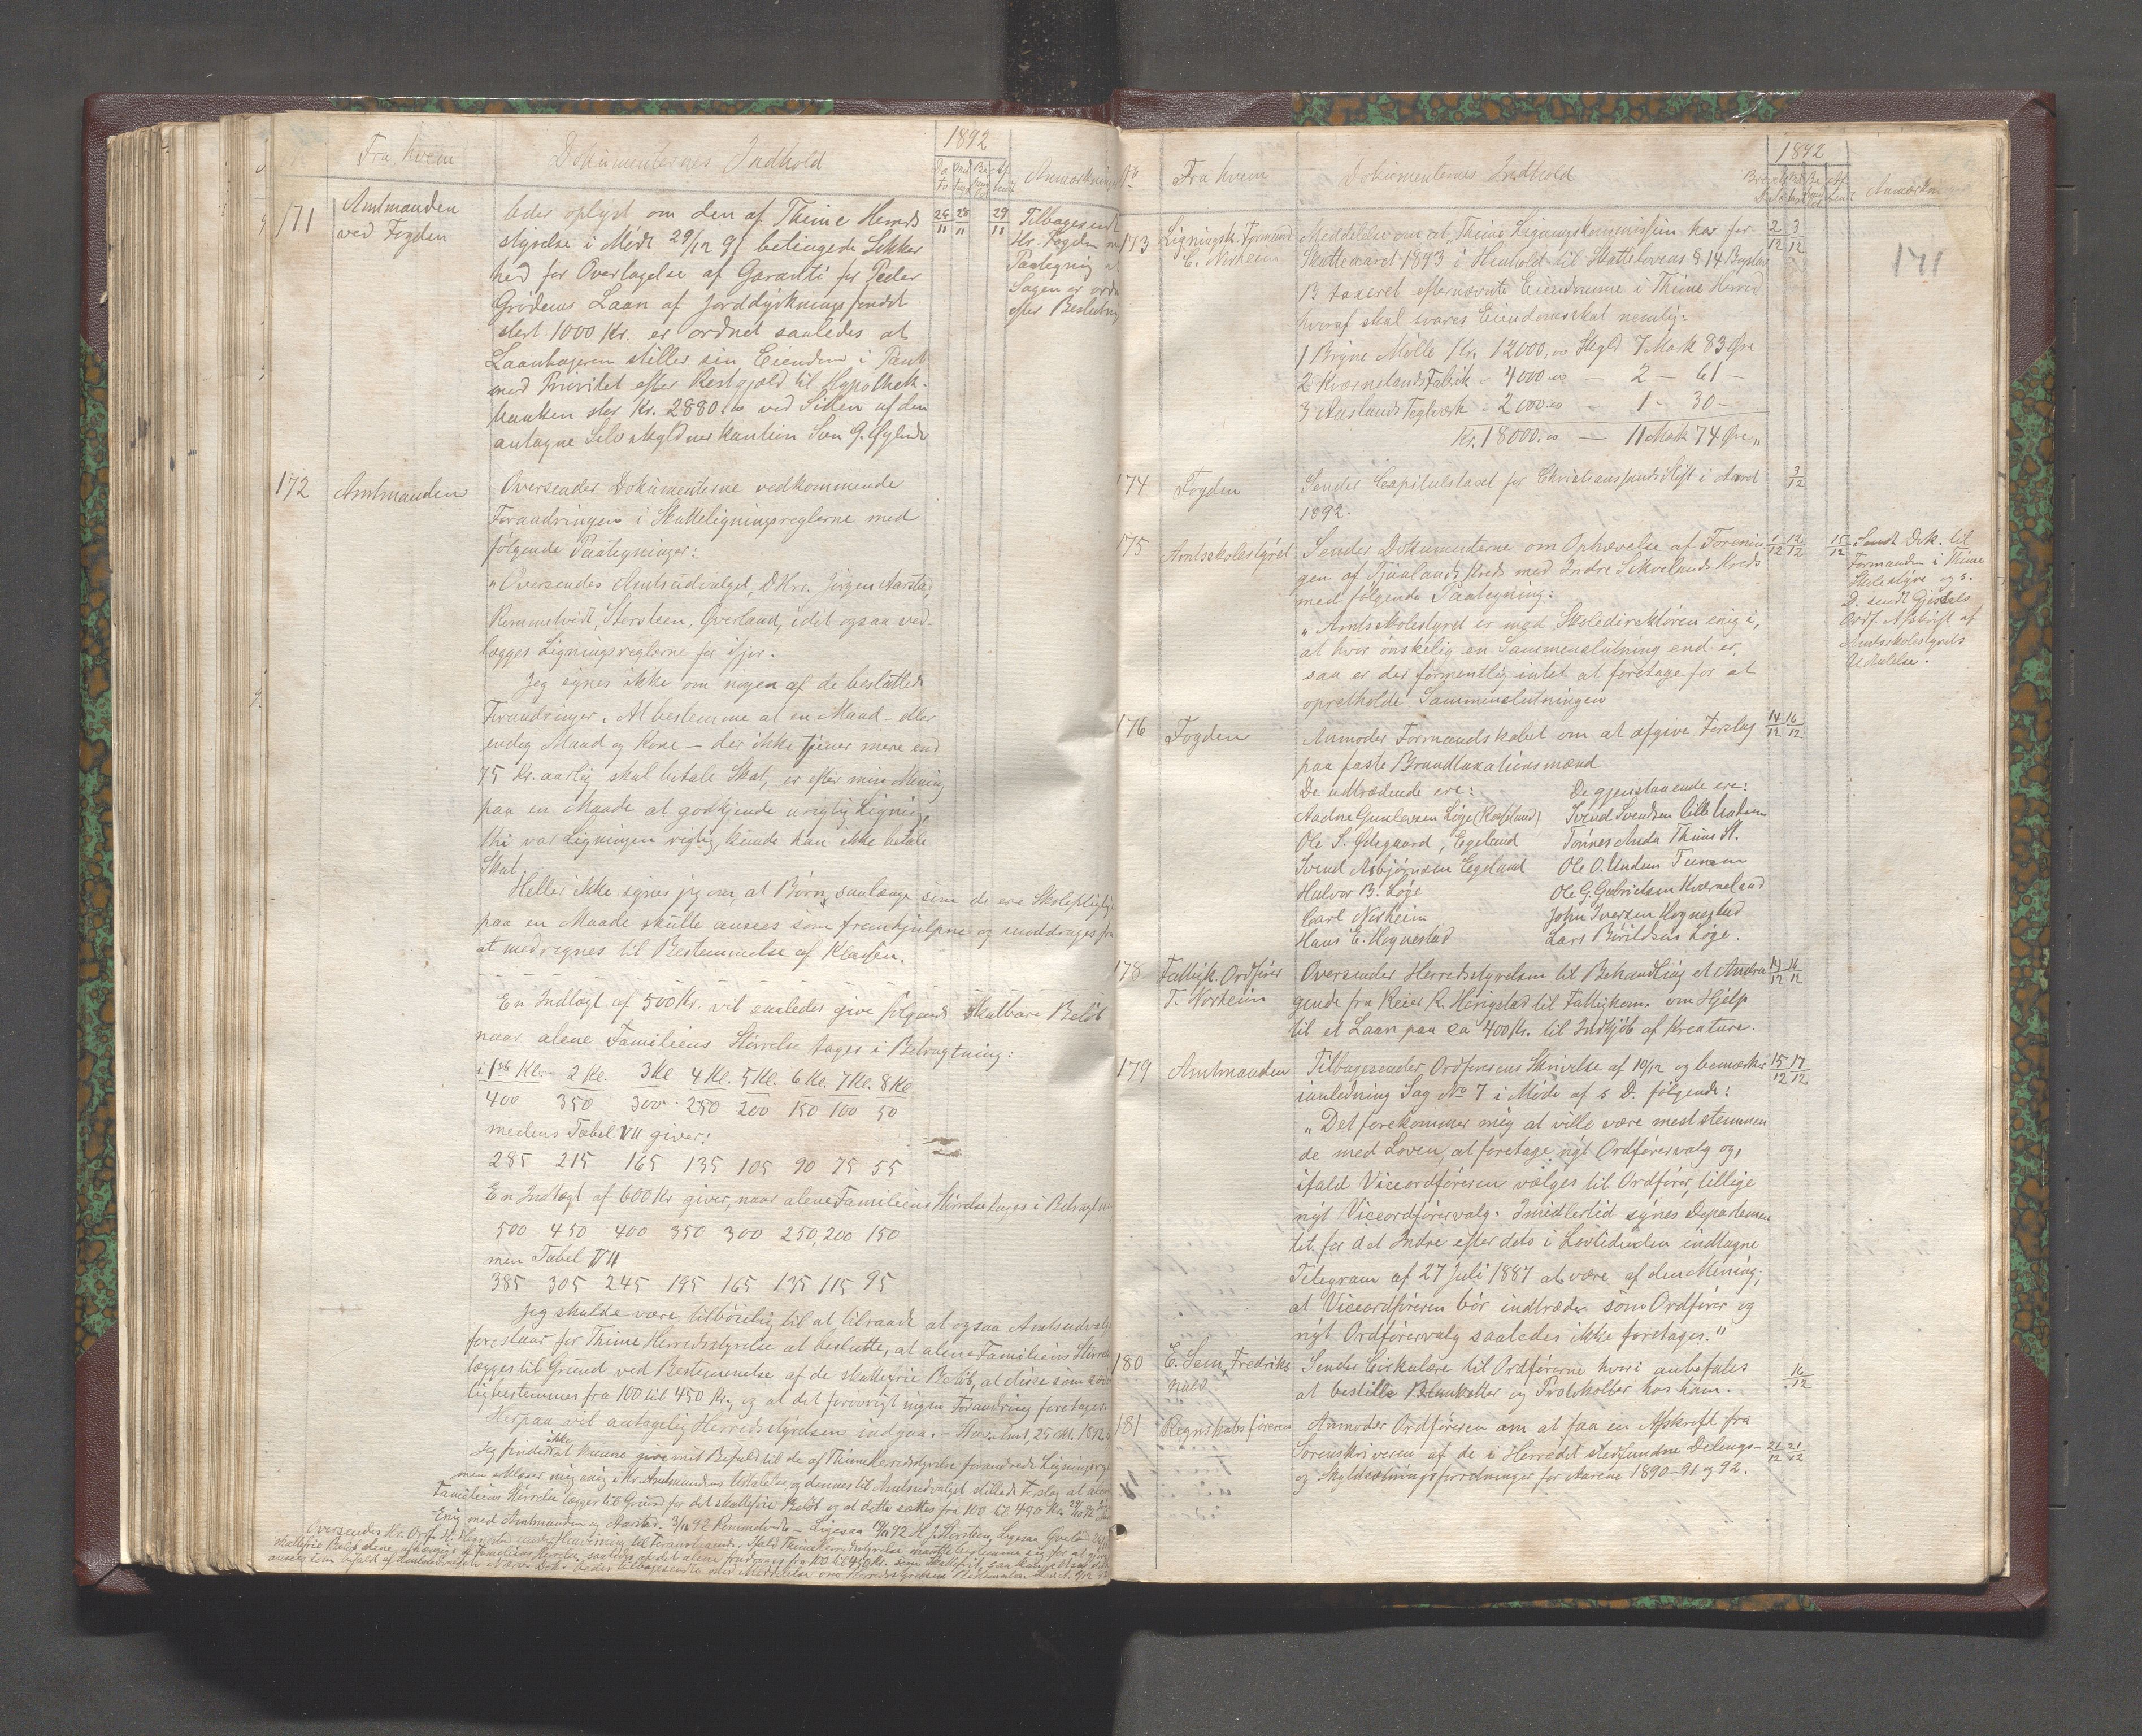 Fra hvem
Dokumenternes Indhold
1892
171
Amtmanden
ved Fogden
beder oplyst om den af Thime Herreds
styrelse i Møde 29/12 91 betingede Sikker
hed for Overtagelse af Garanti for Peder
Grødems Laan af Jorddyrkningsfondet
stort 1000 Kr. er ordnet saaledes at
Laantageren stiller sin Eiendom i Pant
med Prioritet efter Restgjæld til Hypothek-
banken stor Kr. 2880.00 ved Siden af den
antagne Selvskyldnerkaution
26/11 28/11 29/11
Tilbagesendt
Hr. Fogden m
Paategning at
Sagen er ordn
efter Beslutnin
172
Amtmanden
Oversender Dokumenterne vedkommende
Forandringen i Skatteligningsreglerne med
følgende Paategninger:
"Oversendes Amtsudvalget, D'Hrr. Jørgen Aarstad,
Remmetvedt, Stersteen, Qveland, idet ogsaa ved-
lægges Ligningsreglerne for ifjor.
Jeg synes ikke om nogen af de besluttede
Forandringer. At bestemme at en Mand - eller
endog Mand og Kone - der ikke tjener mere end
75 Kr. aarlig skal betale Skat, er efter min Mening
paa en Maade at godkjende urigtig Ligning,
thi var Ligningen rigtig, kunde han ikke betale
Skat.
Heller ikke synes jeg om, at Børn, saalænge som de ere Skolepligtige
paa en Maade skulle ansees som fremhjulpne og unddrages fra
at medregnes til Bestemmelse af Klassen.
En Indtægt af 500 Kr. vil saaledes give følgende skatbare Beløb
naar alene Familiens Størrelse tages i Betragtning:
i 1ste Kl. 2 Kl. 3 Kl 4 Kl. 5 Kl. 6 Kl. 7 Kl. 8 Kl
400 350 300 250 200 150 100 50
medens Tabel VII giver:
285 215 165 135 105 90 75 55
En Indtægt af 600 Kr giver, naar alene Familiens Størrelse tages i Betragtning
500 450 400 350 300 250, 200 150
men Tabel VII
385 305 245 195 165 135 115 95
Jeg skulde være tilbøielig til at tilraade at ogsaa Amtsudvalget
foreslaar for Thime Herredsstyrelse at beslutte, at alene Familiens Størrelse
lægges til Grund ved Bestemmelse af de skattefrie Beløb, at disse som
ligbestemmes fra 100 til 450 Kr., og at det forøvrigt ingen Forandring foretages.
Herpaa vil antagelig Herredsstyrelsen indgaa. - Stav. Amt, 25 1892
Jeg finder ikke at kunne give mit Bifald til de af Thime Herredsstyrelse forandrede Ligningsregler
men erklærer mig enig i Hr. Amtmandens Udtalelse og dennes til Amtsudvalget stillede Forslag at alene
Familiens Størrelse lægges til Grund for det skattefrie Beløb og at dette sættes fra 100 til 450 Kr.
Enig med Amtmanden og Aarstad. 3/11 92 Remmetvedt - Ligesaa
Oversendes Hr. Ordf.

No
Fra hvem
Dokumenternes Indhold
1892
Anmærkninger
171
173
Ligningsk. Formand
C. Nærheim
Meddelelse om at Thime Ligningskommission har for
Skatteaaret 1893 i Henhold til Skattelovens § 14 Bogstav
B taxeret efternævnte Eiendomme i Thime Herred
hvoraf skal svares Eiendomsskat nemlig:
1 Bryne Mølle Kr. 12000,00 Skyld 7 Mark 83 Øre
2 Kværnelands Fabrik - 4000.00 2 - 61 -
3 Aaslands Teglværk - 2000.00 - 1 - 30 -
Kr. 18000.00 - 11 Mark 74 Øre
2/12 3/12
174
Fogden
Sender Capitulstaxt for Christianssands Stift i Aaret
1892.
3/12
175
Amtsskolestyret
Sender Dokumenterne om Ophævelse af Forenin
gen af Tjaalands Kreds med Indre Sikvelands Kreds
med følgende Paategning:
"Amtsskolestyret er med Skoledirektøren enig i,
at hvor ønskelig en Sammenslutning end er,
saa er der formentlig intet at foretage for at
opretholde Sammenslutningen
1/12 12/12 15/12
Sendt Dok. til
Formanden i Thime
Skolestyre og s.
D. sendt Gjesdals
Ordf. Afskrift af
Amtsskolestyrets
Udtalelse.
176
Fogden
Anmoder Formandskabet om at afgive Forslag
paa faste Brandtaxationsmænd
14/12 16/12
De udtrædende ere: De gjenstaaende ere:
Aadne Gunlevsen Løge (Kalsland) Svend Svendsen lille Undem
Ole S. Ødegaard, Egeland Tønnes Anda Thime St.
Svend Asbjørnsen Egeland Ole O. Undem Tunem
Halvor B. Løge Ole G. Gabrielsen Kverneland
Carl Nærheim John Iversen Hognestad
Hans E. Hognestad Lars Bærildsen Løge.
178
Fattigk. Ordfører
T. Norheim
Oversender Herredsstyrelsen til Behandling et Andra
gende fra Reier R. Herigstad til Fattigkom. om Hjælp
til et Laan paa ca 400 Kr. til Indkjøb af Kreature.
14/12 16/12
179
Amtmanden
Tilbagesender Ordførerens Skrivelse af 10/12 og bemærker
i anledning Sag No 7 i Møde af s. D. følgende:
"Det forekommer mig at ville være mest stemmen
de med Loven, at foretage nyt Ordførervalg og,
ifald Viceordføreren vælges til Ordfører, tillige
nyt Viceordførervalg. Imidlertid synes Departemen
tet for det Indre efter dets i Lovtidenden indtagne
Telegram af 27 Juli 1887 at være af den Mening,
at Viceordføreren bør indtræde som Ordfører og
nyt Ordførervalg saaledes ikke foretages."
15/12 17/12
180
E. Sem, Fredriks
hald
Sender Cirkulære til Ordførerne hvori anbefales
at bestille Blanketter og Protokoller hos ham.
16/12
181
Regnskabsføreren
Anmoder Ordføreren om at faa en Afskrift fra
Sorenskriveren af de i Herredet stedfundne Delings-
og Skyldsætningsforretninger for Aarene 1890-91 og 92.
21/12 21/12